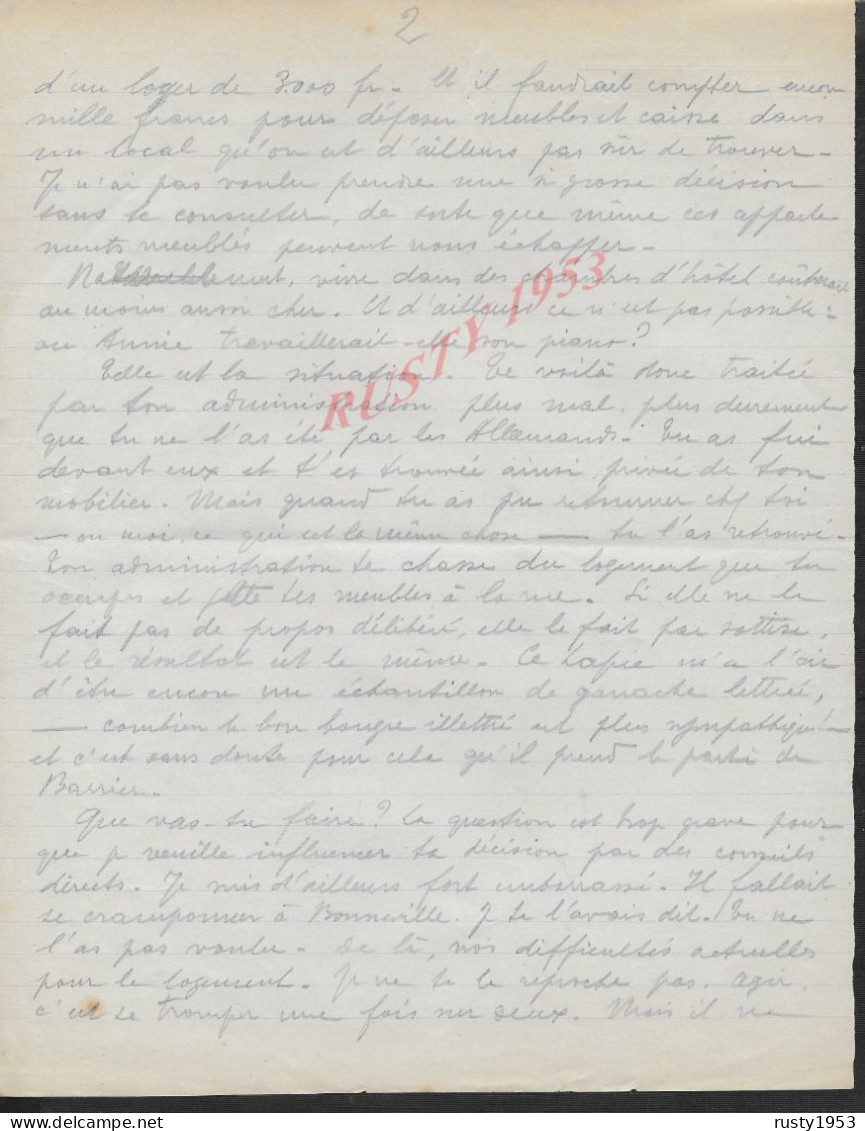 2
d'un loyer de 3.000 fr. Et il faudrait compter encore
mille francs pour déposer meubles et caisse dans
un local qu'on est d'ailleurs pas sûr de trouver.
Je n'ai pas voulu prendre une si grosse décision
sans te consulter, de sorte que même ces apparte
ments meublés peuvent nous échapper.
vivre dans des chambres d'hôtel coûterait
au moins aussi cher. Et d'ailleurs ce n'est pas possible :
où Annie travaillerait-elle son piano ?
Telle est la situation. Te voilà donc traitée
par ton administration plus mal, plus durement
que tu ne l'as été par les Allemands. Tu as fui
devant eux et t'es trouvée ainsi privée de ton
mobilier. Mais quand tu as pu retourner chez toi
— ou moi, ce qui est la même chose — tu l'as retrouvé.
Ton administration te chasse du logement que tu
occupes et jette tes meubles à la rue. Si elle ne le
fait pas de propos délibéré, elle le fait par sottise,
et le résultat est le même. Ce Lapie m'a l'air
d'être encore un échantillon de ganache lettrée,
— combien le bon bougre illettré est plus sympathique ! —
et c'est sans doute pour cela qu'il prend le parti de
Barrier.
Que vas-tu faire ? La question est trop grave pour
que je veuille influencer ta décision par des conseils
directs. Je suis d'ailleurs fort embarrassé. Il fallait
se cramponner à Bonneville. Je te l'avais dit. Tu ne
l'as pas voulu. De là, nos difficultés actuelles
pour le logement. Je ne te le reproche pas. Agir,
c'est se tromper une fois sur deux. Mais il ne
RUSTY 1953
rusty1953